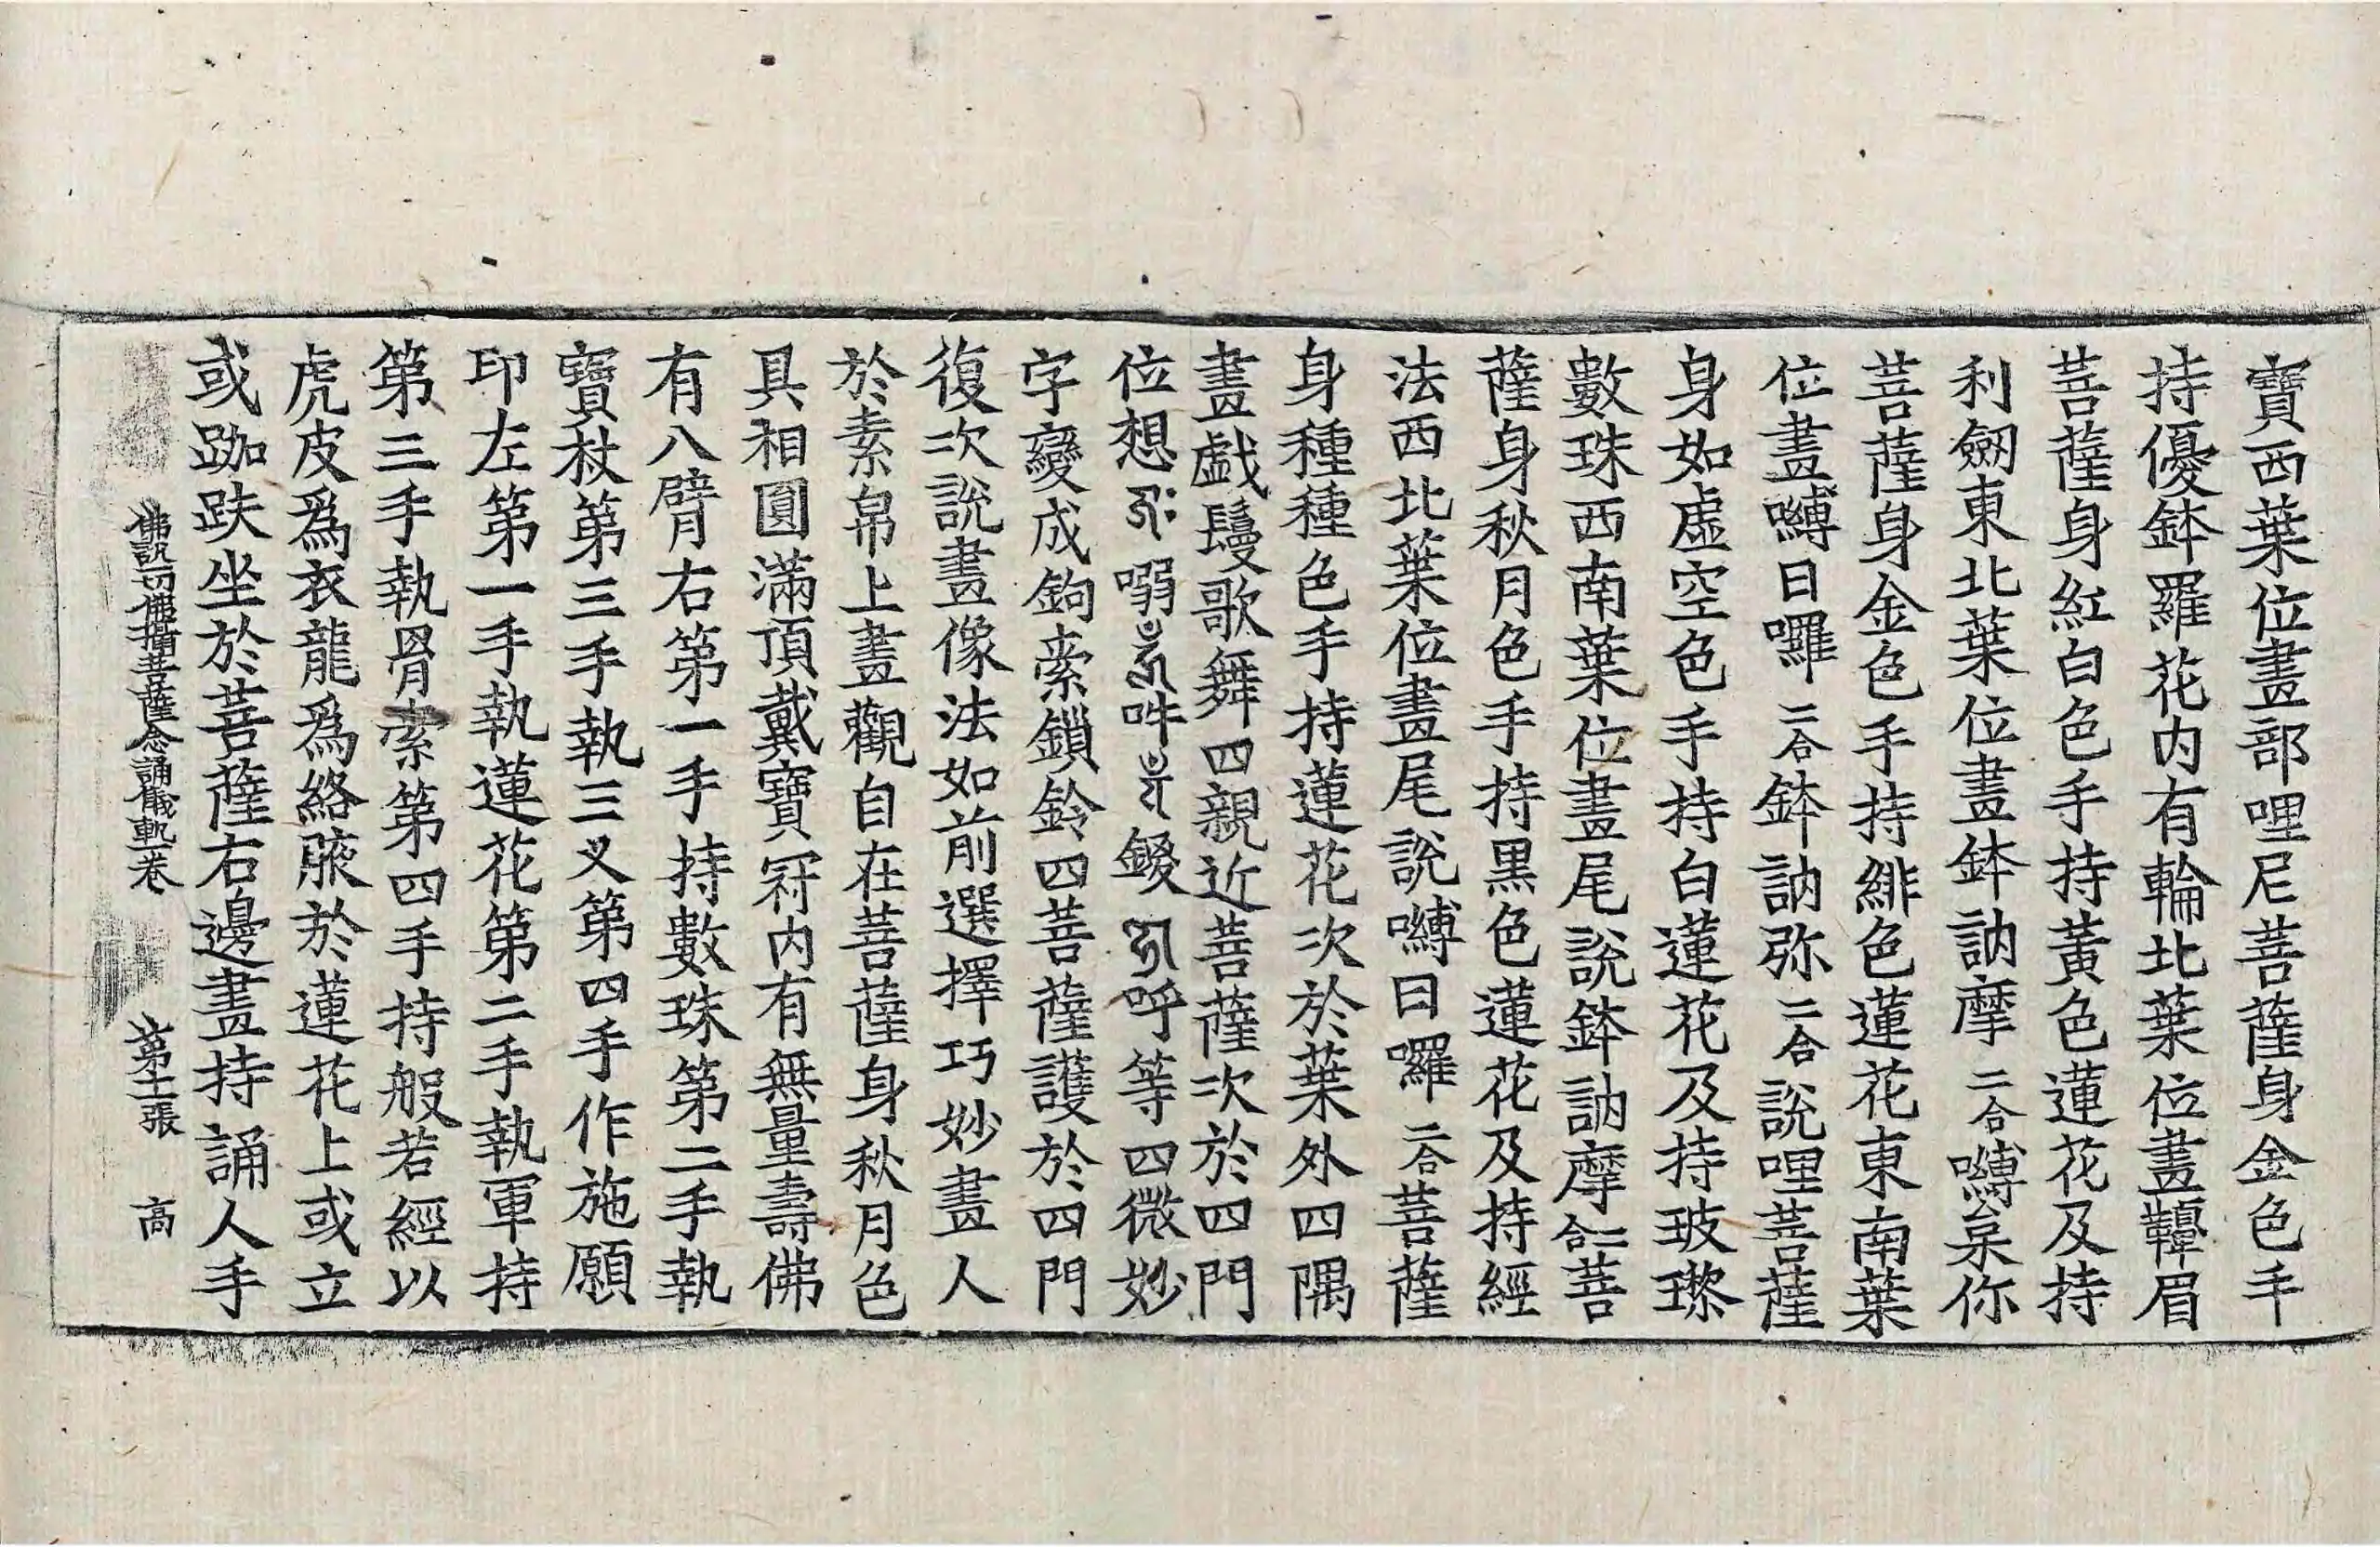 寶西葉位畫部哩尼菩薩身金色手
持優鉢羅花内有輪北葉位畫鞞眉
菩薩身紅白色手持黃色蓮花及持
利劒東北葉位畫鉢訥摩二合嚩枲你
菩薩身金色手持緋色蓮花東南葉
位畫嚩日囉二合鉢訥弥二合說哩菩薩
身如虛空色手持白蓮花及持玻瓈
數珠西南葉位畫尾說鉢訥摩二合菩
薩身秋月色手持黑色蓮花及持經
法西北葉位畫尾說嚩日囉二合菩薩
身種種色手持蓮花次於葉外四隅
畫戱鬘歌舞四親近菩薩次於四門
位想嗋吽鍐呼等四微妙
字變成鉤索鎖鈴四菩薩護於四門
復次說畫像法如前選擇巧妙畫人
於素帛上畫觀自在菩薩身秋月色
具相圓滿頂戴寶冠内有無量壽佛
有八臂右第一手持數珠第二手執
寶杖第三手執三叉第四手作施願
印左第一手執蓮花第二手執軍持
第三手執骨索第四手持般若經以
虎皮爲衣龍爲絡腋於蓮花上或立
或跏趺坐於菩薩右邊畫持誦人手
佛說一切佛攝相應大教王經聖觀自在菩薩念誦儀軌一卷 第十一張 高